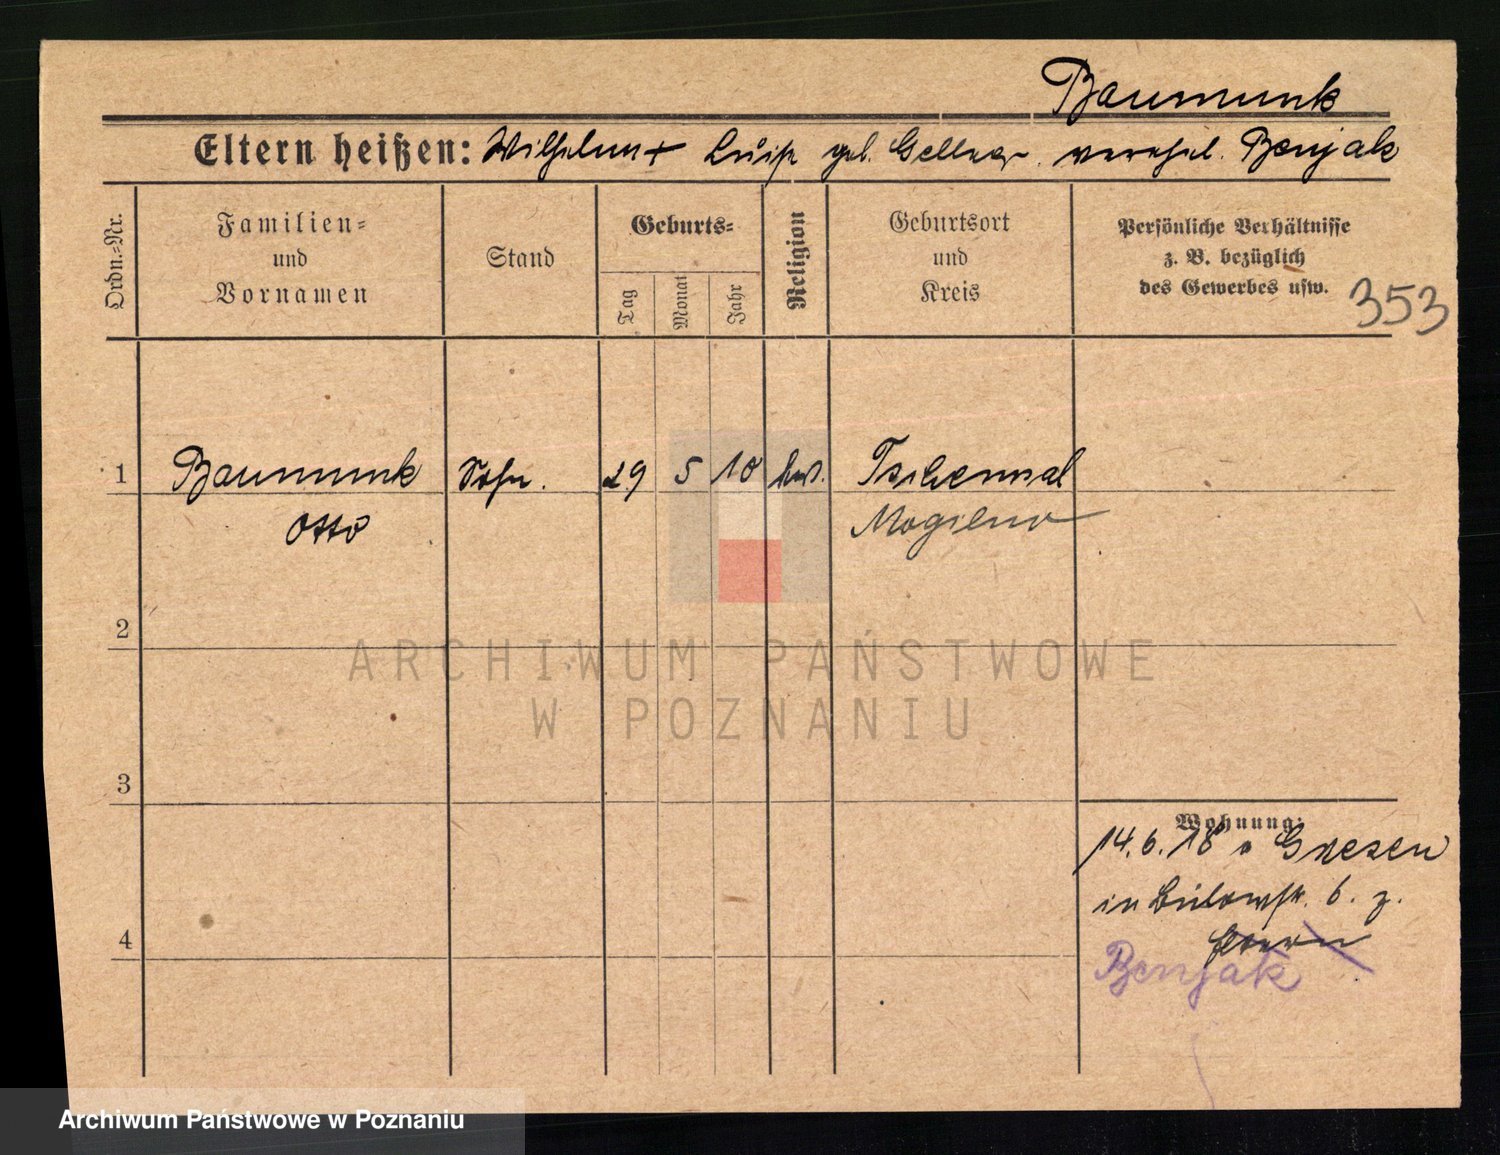 Baumunk
Eltern heißen: Wilhelm + Luise geb. Gellner verehel. Benjak
Ordn.-Nr.
Familien-
und
Vornamen
Stand
Geburts-
Tag
Monat
Jahr
Religion
Geburtsort
und
Kreis
Persönliche Verhältnisse
z. B. bezüglich
des Gewerbes usw.
353
1
Baumunk
Otto
Sohn.
29
5
10
Mogilno
2
ARCHIWUM PAŃSTWOWE
W POZNANIU
3
4
Wohnung:
14.6.18 v Gnesen
in Bülowstr. 6. z.
Benjak
Archiwum Państwowe w Poznaniu